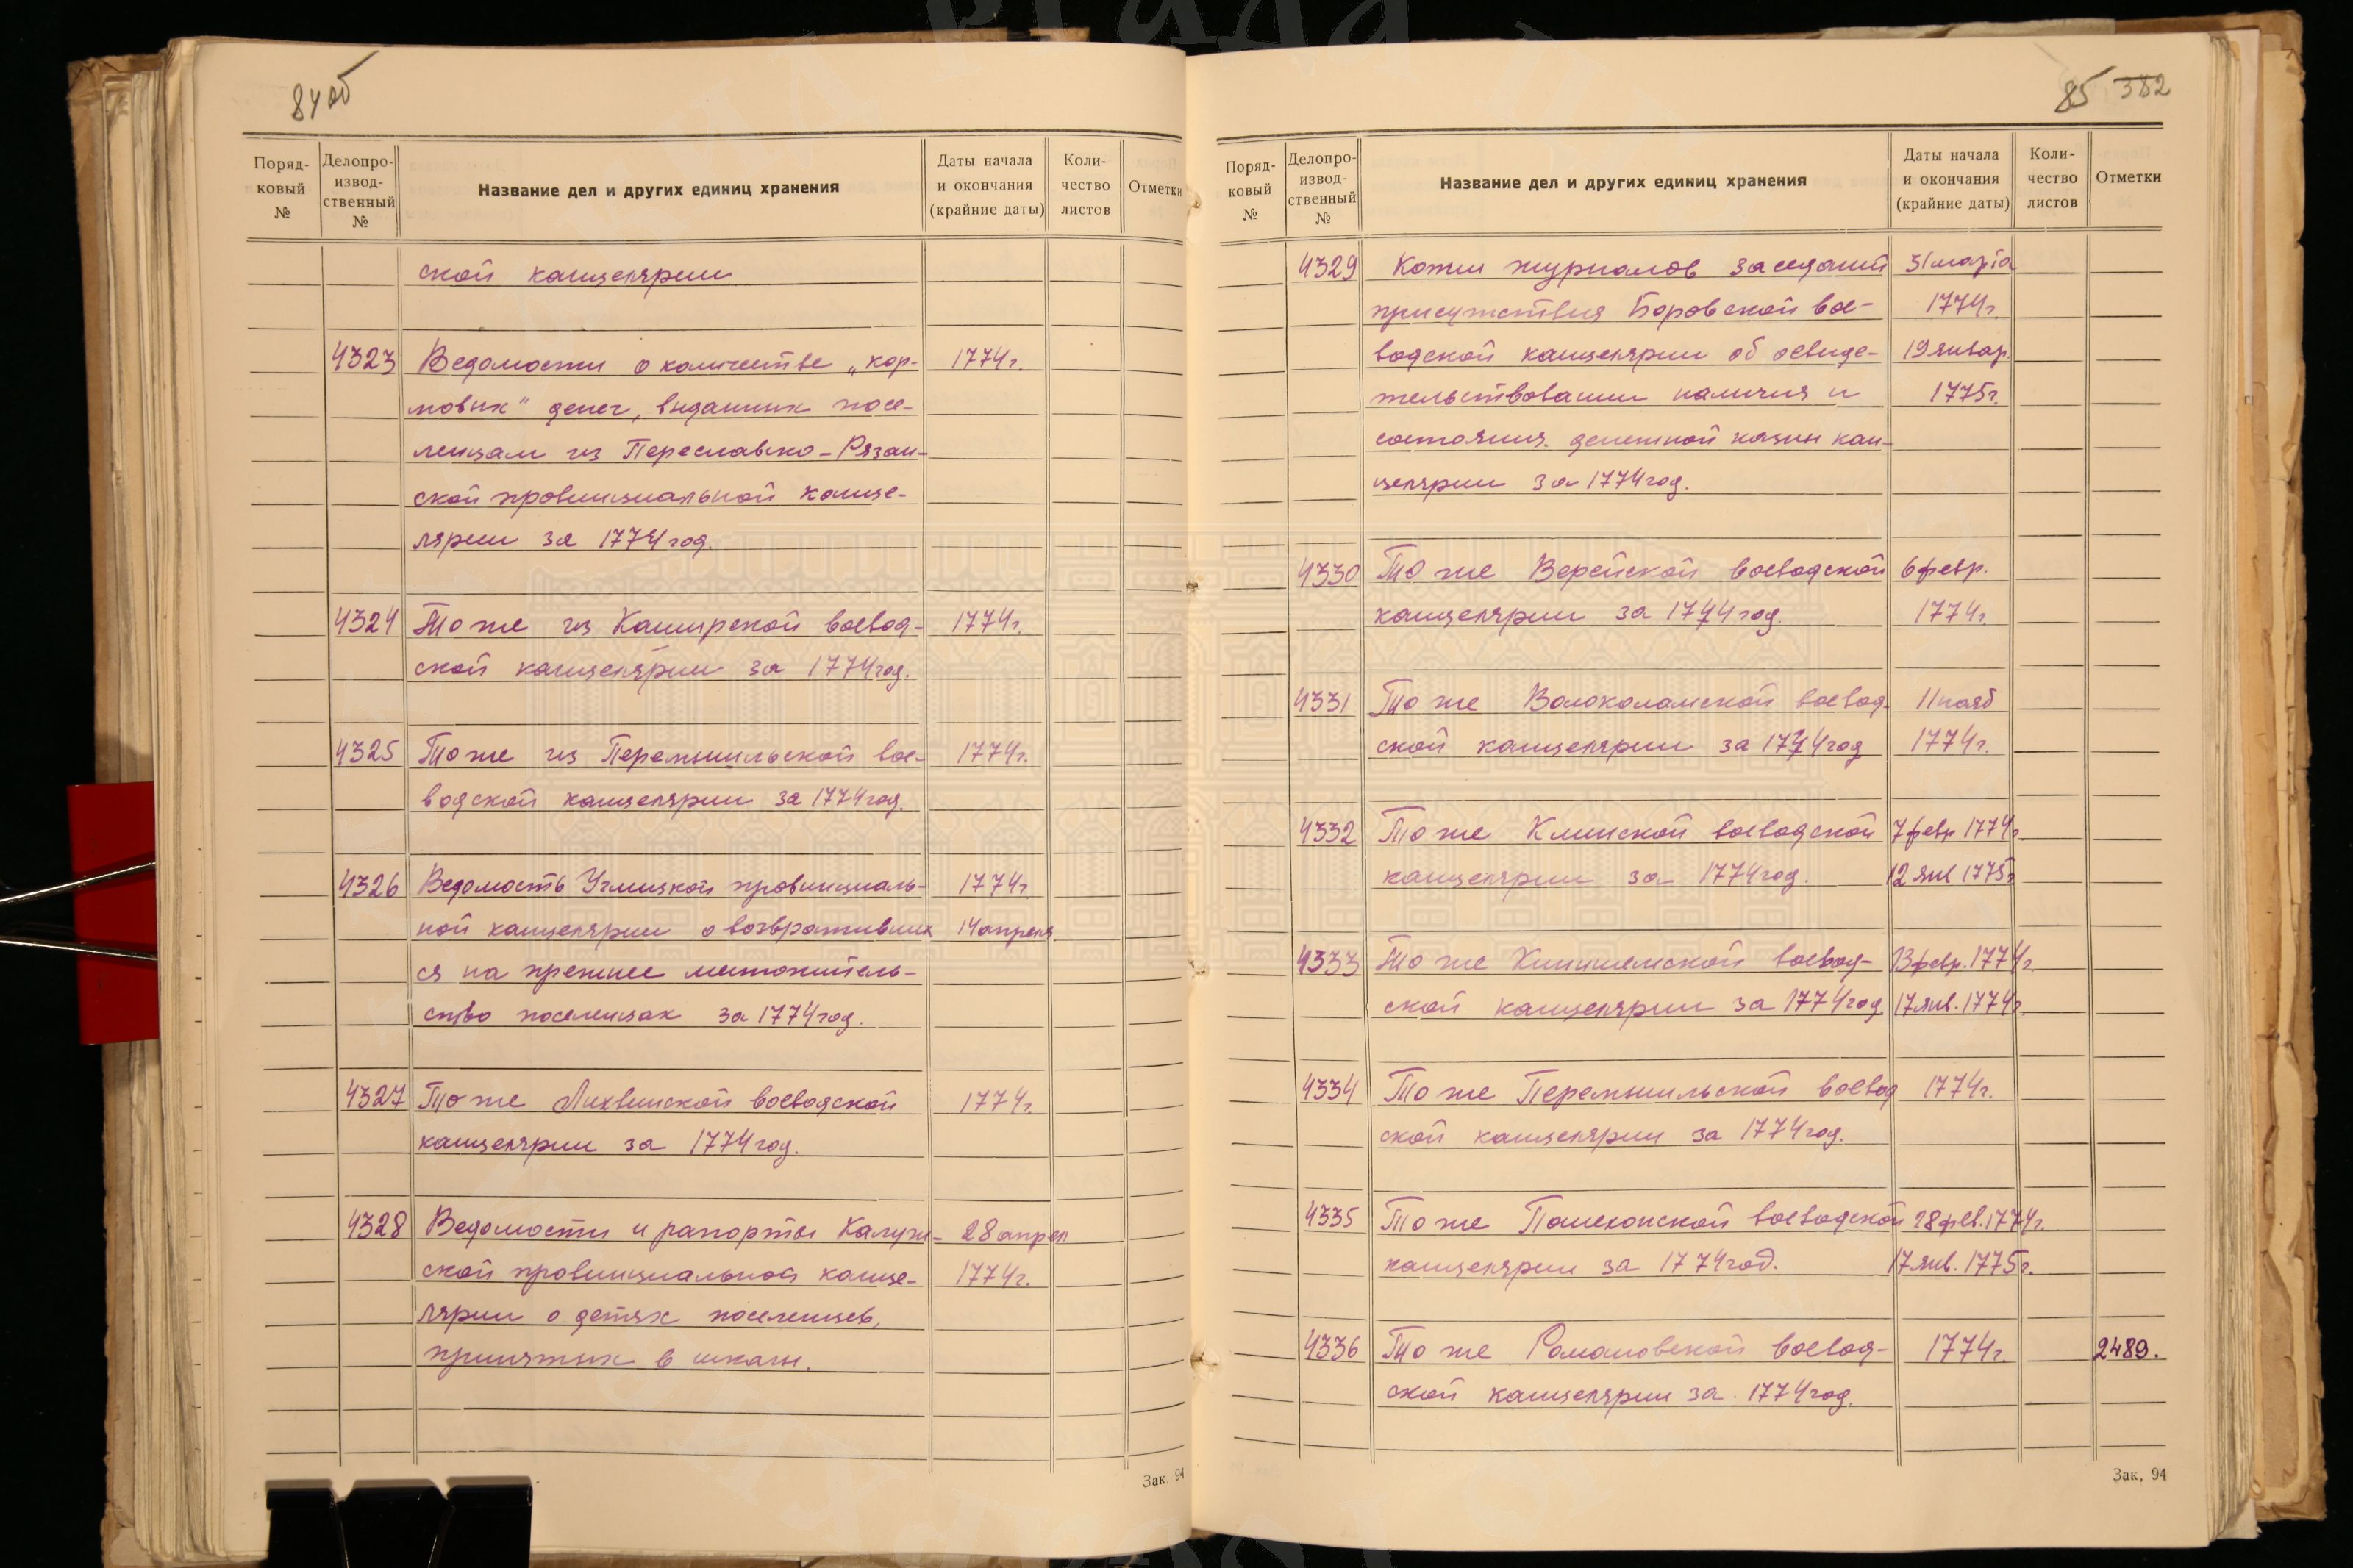 84об
Поряд-
ковый
№
Делопро-
извод-
ственный
№
Название дел и других единиц хранения
Даты начала
и окончания
(крайние даты)
Коли-
чество
листов
Отметки
ской канцелярии
4323 Ведомости о количестве „кор- 1774г.
мовых" денег, выданных посе-
ленцам из Переславско-Рязан-
ской провинциальной канце-
лярии за 1774 год.
4324 То же из Каширской воевод- 1774г.
ской канцелярии за 1774 год.
4325 То же из Перемышльской вое- 1774г.
водской канцелярии за 1774 год.
4326 Ведомость Углицкой провинциаль- 1774г.
ной канцелярии о возвративших 14 апреля
ся на прежнее местожитель-
ство поселенцах за 1774 год.
4327 То же Лихвинской воеводской 1774г.
канцелярии за 1774 год.
4328 Ведомости и рапорты Калуж- 28 апрел
ской провинциальной канце- 1774г.
лярии о детях поселенцев,
принятых в школы.
Зак. 94
85 382
Поряд-
ковый
№
Делопро-
извод-
ственный
№
Название дел и других единиц хранения
Даты начала
и окончания
(крайние даты)
Коли-
чество
листов
Отметки
4329 Копии журналов заседаний 31 марта
присутствия Боровской вое- 1774г.
водской канцелярии об освиде- 19 январ.
тельствовании наличия и 1775г.
состояния денежной казны кан-
целярии за 1774 год.
4330 То же Верейской воеводской 6 февр.
канцелярии за 1774 год. 1774г.
4331 То же Волоколамской воевод- 11 нояб
ской канцелярии за 1774 год 1774г.
4332 То же Клинской воеводской 7 февр 1774г.
канцелярии за 1774 год. 12 янв 1775г
4333 То же Кинешемской воевод- 13 февр. 1774г.
ской канцелярии за 1774 год. 17 янв. 1774г.
4334 То же Перемышльской воевод 1774г.
ской канцелярии за 1774 год.
4335 То же Пошехонской воеводской 28 фев. 1774г.
канцелярии за 1774 год. 17 янв. 1775г.
4336 То же Романовской воевод- 1774г. 2489.
ской канцелярии за 1774 год.
Зак. 94